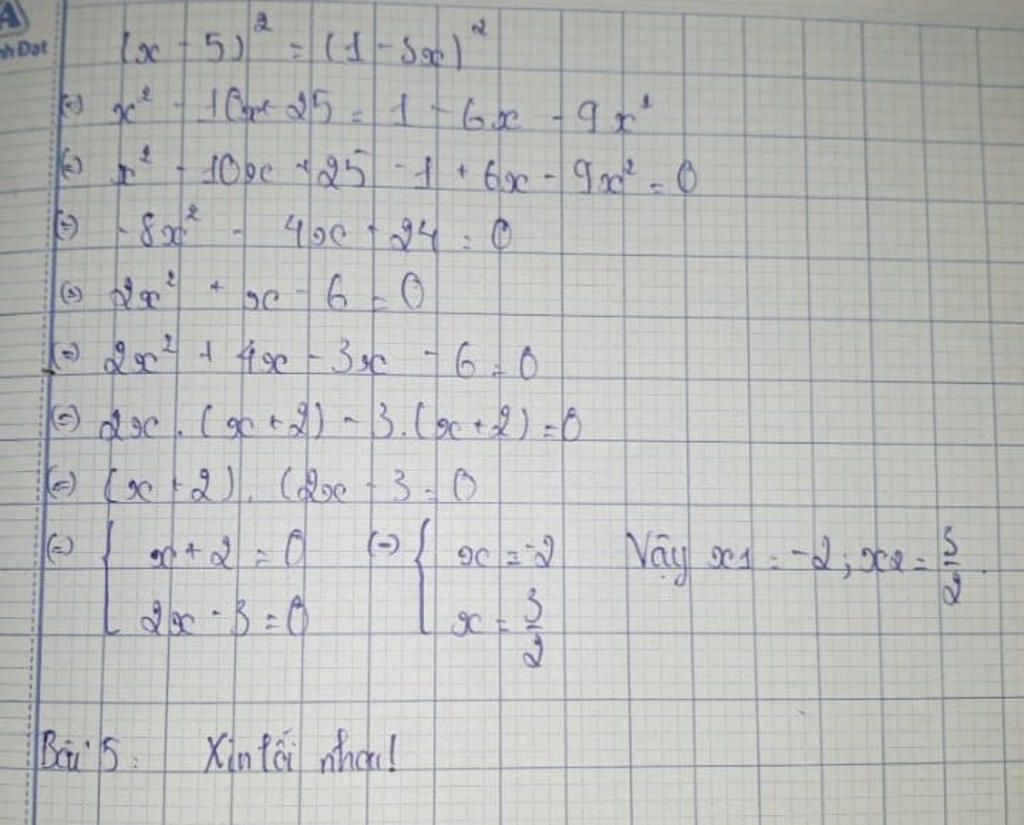 A
nh Đạt
(x - 5)² = (1 - 3x)²
(=) x² - 10x + 25 = 1 - 6x - 9x²
(=) x² - 10x + 25 - 1 + 6x - 9x² = 0
(=) -8x² - 4x + 24 = 0
(=) 2x² + x - 6 = 0
(=) 2x² + 4x - 3x - 6 = 0
(=) 2x . (x + 2) - 3 . (x + 2) = 0
(=) (x + 2) . (2x - 3 = 0
(=) { x + 2 = 0 (=) { x = -2 Vậy x1 = -2 ; x2 = 3/2 .
2x - 3 = 0 x = 3/2
Bài 5 : Xin lỗi nhau!